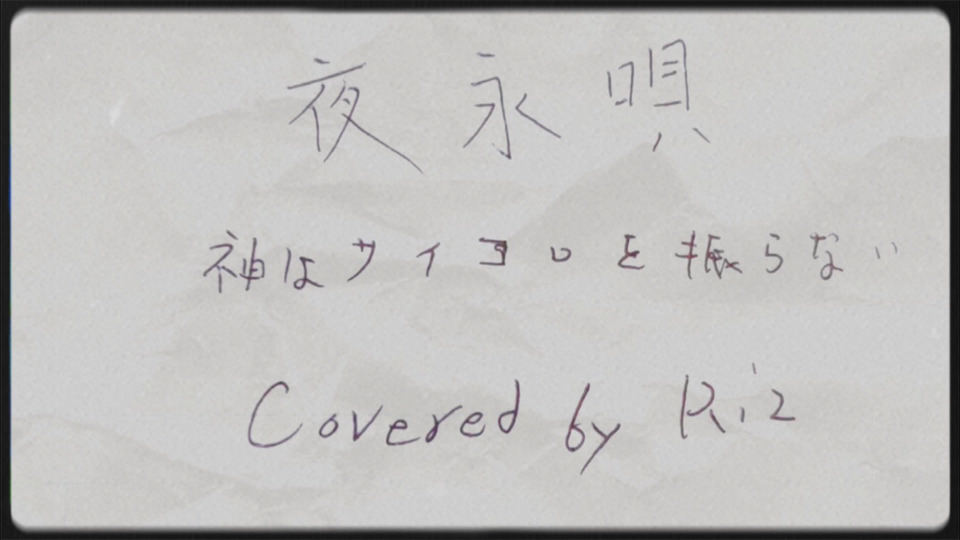 夜永唄
神はサイコロを振らない
Covered by Riz